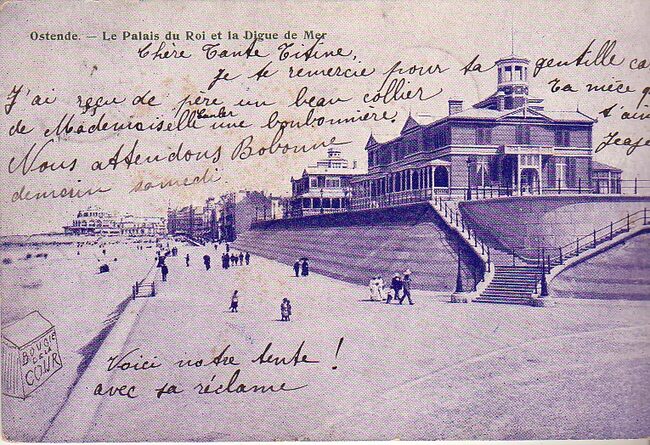 Ostende. — Le Palais du Roi et la Digue de Mer
Chère Tante Titine,
Je te remercie pour ta gentille ca
J'ai reçu de père un beau collier Ta nièce q
de Mademoiselle une bonbonnière. t'aim
Nous attendons Bobonne
demain samedi
DE LA
COUR
Voici notre tente !
avec sa réclame